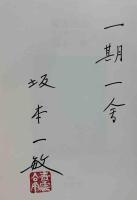 一期一会
坂本一敏